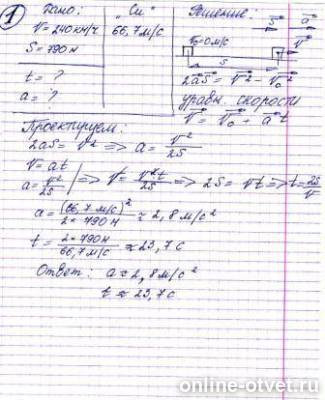 1
Дано:
V = 240 км/ч
S = 790 м
t = ?
a = ?
"Си"
66,7 м/с
Решение:
V₀ = 0 м/с
S
a
V
2aS = V² − V₀²
уравн. скорости
V = V₀ + at
Проектируем:
2aS = V² => a = V²/2S
V = at
a = V²/2S | => V = V²t/2S => 2S = Vt => t = 2S/V
a = (66,7 м/с)²/2 · 790 м ≈ 2,8 м/с²
t = 2 · 790 м/66,7 м/с ≈ 23,7 с
Ответ: a ≈ 2,8 м/с²
t ≈ 23,7 с
online-otvet.ru